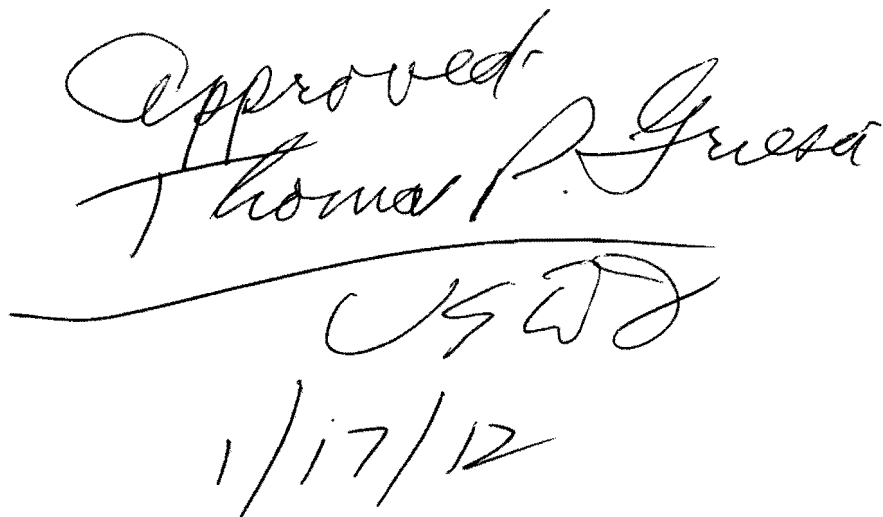 Approved.
Thomas P. Griesa
USDJ
1/17/12